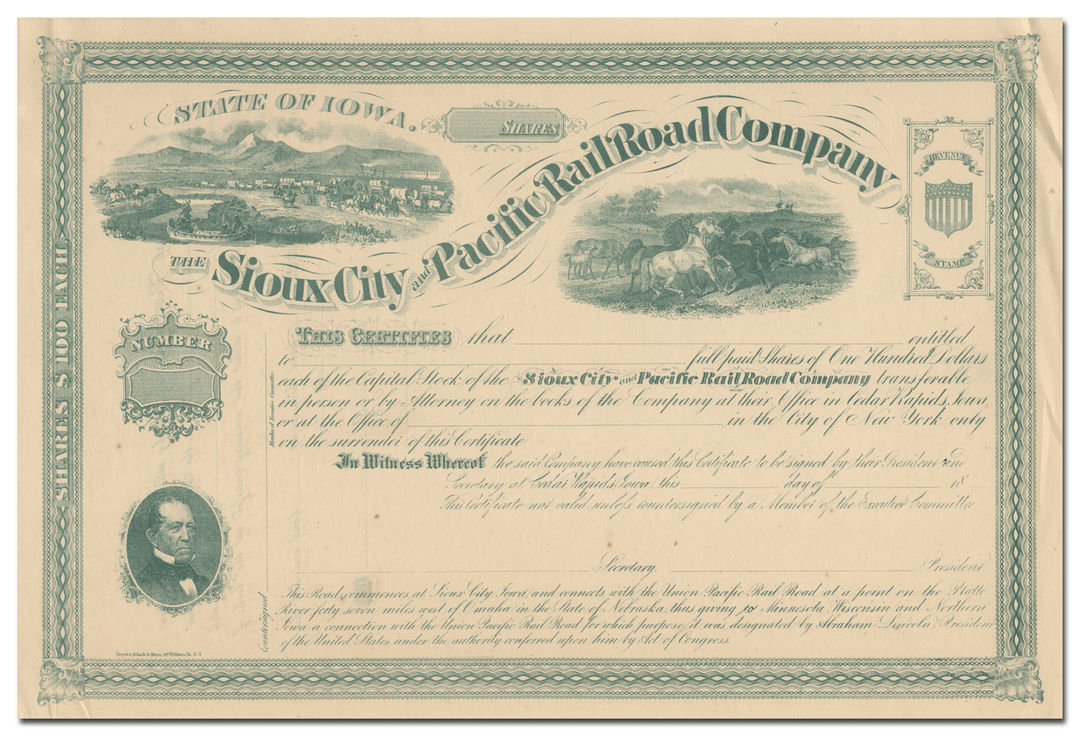 STATE OF IOWA.
SHARES
THE Sioux City and Pacific Rail Road Company
REVENUE
STAMP
SHARES $100 EACH
NUMBER
This Certifies that entitled
to full paid Shares of One Hundred Dollars
each of the Capital Stock of the Sioux City and Pacific Rail Road Company transferable
in person or by Attorney on the books of the Company at their Office in Cedar Rapids, Iowa
or at the Office of in the City of New York only
on the surrender of this Certificate
In Witness Whereof the said Company have caused this Certificate to be signed by their President and
Secretary at Cedar Rapids Iowa this day of 18
This Certificate not valid unless countersigned by a Member of the Executive Committee
Secretary President
Countersigned
Member of Executive Committee
This Road commences at Sioux City Iowa, and connects with the Union Pacific Rail Road at a point on the Platte
River forty seven miles west of Omaha in the State of Nebraska, thus giving to Minnesota Wisconsin and Northern
Iowa a connection with the Union Pacific Rail Road for which purpose it was designated by Abraham Lincoln President
of the United States under the authority conferred upon him by Act of Congress.
William St. N.Y